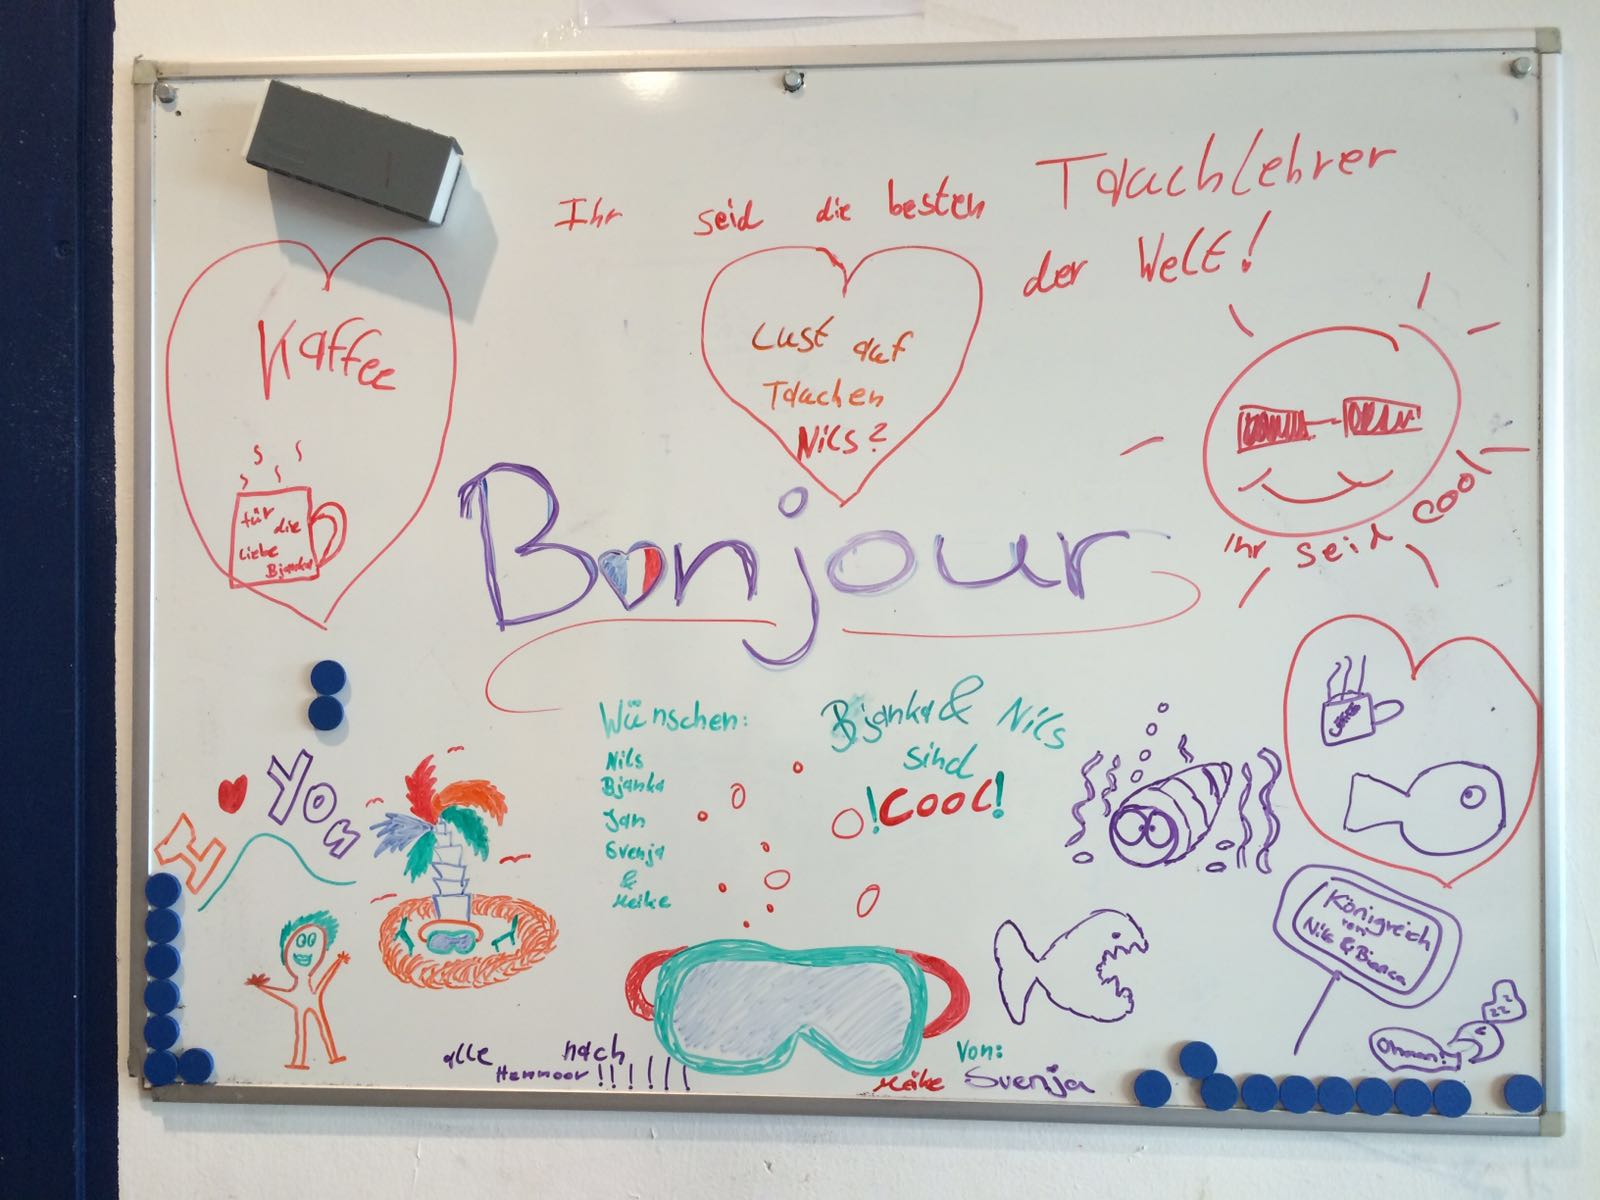 Ihr seid die besten Tauchlehrer
der Welt!
Kaffee
für die
liebe
Bjanka
Lust auf
Tauchen
Nils?
Ihr seid cool
Bonjour
Wünschen:
Nils
Bjanka
Jan
Svenja
&
Meike
Bjanka & Nils
sind
!Cool!
I ♥ You
Königreich
von
Nils & Bianca
Ohman!
alle nach
Hemmoor!!!!!!
Von:
Meike Svenja